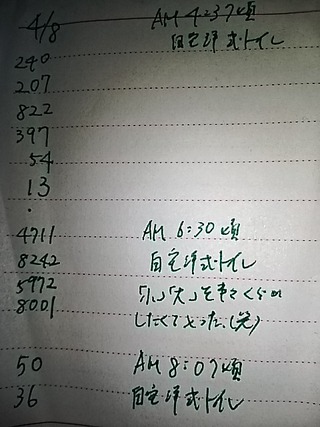 4/8 AM 4:37頃
240 自宅洋式トイレ
207
822
397
54
13
・
4711 AM 6:30頃
8242 自宅洋式トイレ
5972 「小」「大」を
8001 したくてとった。(笑)
50 AM 8:07頃
36 自宅洋式トイレ